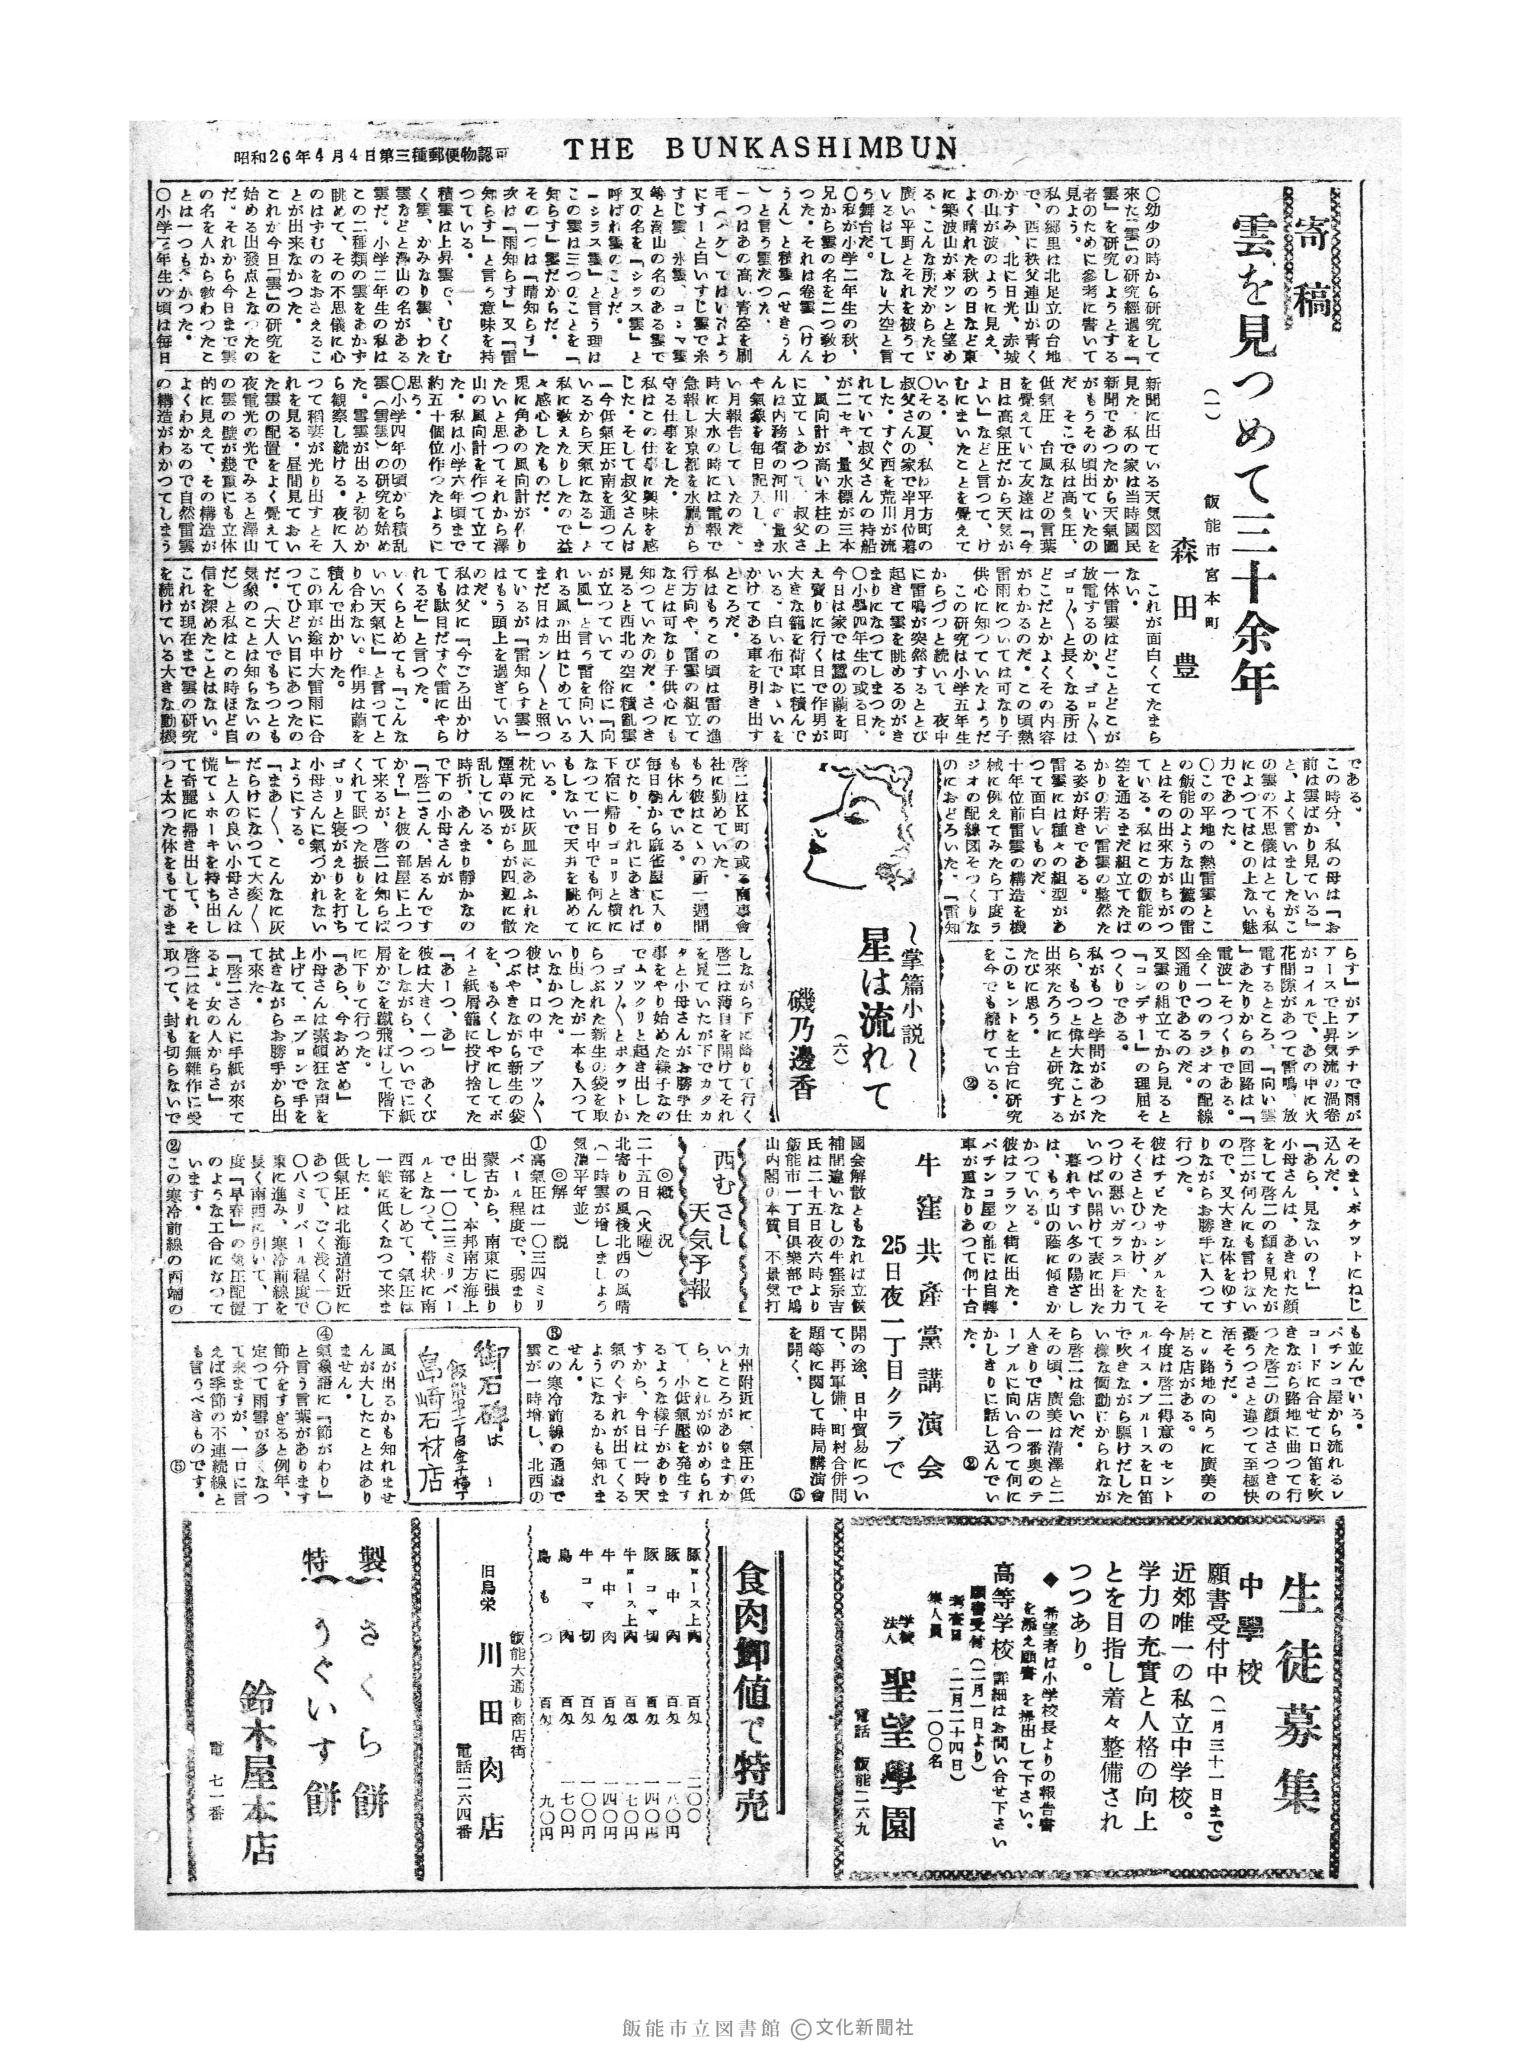 昭和26年4月4日第三種郵便物認可
THE BUNKASHIMBUN
寄稿
雲を見つめて三十余年
(一)
飯能市宮本町
森田豊
〇幼少の時から研究して
来た『雲』の研究経過を『
雲』を研究しようとする
者のために参考に書いて
見よう。
私の郷里は北足立の台地
で、西に秩父連山が青く
かすみ、北に日光、赤城
の山が波のように見え、
よく晴れた秋の日など東
に築波山がポツンと望め
る、こんな所だからたゞ
廣い平野とそれを被うて
いるはてしない大空と言
う舞台だ。
〇私が小学二年生の秋、
兄から雲の名を二つ敎わ
つた。それは巻雲(けん
うん)と積雲(せきうん
)と言う雲だつた。
一つはあの高い青空を刷
毛(ハケ)ではいたよう
にすーと白いすじ雲で糸
すじ雲、氷雲、コンマ雲
等と高山の名のある雲で
又の名を『シラス雲』と
呼ばれ雲のことだ。
『シラス雲』と言う理は
この雲は三つのことを『
知らす』雲だからだ。
その一つは『晴知らす』
次は『雨知らす』又『雷
知らす』と言う意味を持
つている。
積雲は上昇雲で、むくむ
く雲、かみなり雲、わた
雲などと澤山の名がある
雲だ。小学二年生の私は
この二種類の雲をあかず
眺めて、その不思儀に心
のはずむのをおさえるこ
とが出来なかつた。
これが今日『雲』の研究を
始める出發点となつたの
だ。それから今日まで雲
の名を人から敎わつたこ
とは一つもなかつた。
〇小学三年生の頃は毎日
新聞に出ている天気図を
見た。私の家は当時國民
新聞であつたから天氣圖
がもうその頃出ていたの
だ。そこで私は高気圧、
低氣圧、台風などの言葉
を覺えていて友達は『今
日は高氣圧だから天気が
よい』などと言つて、け
むにまいたことを覺えて
いる。
〇その夏、私は平方町の
叔父さんの家で半月位暮
した。すぐ西を荒川が流
れていて叔父さんの持船
が二セキ、量水標が三本
、風向計が高い木柱の上
に立てゝあつて、叔父さ
んは内務省の河川の量水
や氣象を毎日記入し、ま
い月報告していたのだ。
時に大水の時には電報で
急報し東京都を水禍から
守る仕事をした。
私はこの仕事に興味を感
じた。そして叔父さんは
『今低氣圧が南を通つて
いるから天氣になる』と
私に敎えたりしたので益
々感心したものだ。
兎に角あの風向計が作り
たいと思つてそれから澤
山の風向計を作つて立て
た。私は小学六年頃まで
約五十個位作つたように
思う。
〇小学四年の頃から積乱
雲(雷雲)の研究を始め
た。雪雲が出ると初めか
ら観察し続ける。夜に入
つて稲妻が光り出すとそ
れを見る。昼間見ておい
た雲の配置をよく覺えて
夜電光の光でみると澤山
の雲の壁が幾重にも立体
的に見えて、その構造が
よくわかるので自然雷雲
の構造がわかつてしまう
これが面白くてたまら
ない。
一体雷雲はどことどこが
放電するのか、ゴロ〱
ゴロ〱〱と長くなる所は
どこだとかよくその内容
がわかるのだ。この頃熱
雷雨については可なり子
供心に知つていたようだ
この研究は小学五年生
からづつと続いて、夜中
に雷鳴が突然するととび
起きて雲を眺めるのがき
まりになつてしまつた。
〇小學四年生の或る日、
今日は家では蚕の繭を町
え賣りに行く日で作男が
大きな籠を荷車に積んで
いる。白い布でおゝいを
かけてある車を引き出す
ところだ。
私はもうこの頃は雷の進
行方向や、雷雲の組立て
などは可なり子供心にも
知つていたのだ。さつき
見ると西北の空に積乱雲
が立つていて 俗に『向
い風』と言う雷を向い入
れる風が出はじめている
まだ日はカン〱と照つ
ているが『雷知らす雲』
はもう頭上を過ぎている
のだ。
私は父に『今ごろ出かけ
ても駄目だすぐ雷にやら
れるぞ』と言つた。
いくらとめても『こんな
いい天氣に』と言つてと
り合わない。作男は繭を
積んで出かけた。
この車が途中大雷雨に合
つてひどい目にあつたの
だ。(大人でもちつとも
気象のことは知らないの
だ)と私はこの時ほど自
信を深めたことはない。
これが現在まで雲の研究
を続けている大きな動機
である。
この時分、私の母は『お
前は雲ばかり見ている』
と、よく言いましたがこ
の雲の不思儀はとても私
によつてはこの上ない魅
力であつた。
〇この平地の熱雷雲とこ
の飯能のような山麓の雷
とはその出來方がちがつ
ている。私はこの飯能の
空を通るまだ組立てたば
かりの若い雷雲の整然た
る姿が好きである。
つて面白いものだ。
雷雲には種々の組型があ
十年位前雷雲の構造を機
械に例えてみたら丁度ラ
ジオの配線図そつくりな
のにおどろいた。『雷知
らす』がアンテナで雨が
アースで上昇気流の渦巻
がコイルで、あの中に火
花間隙があつて雷鳴、放
電するところ、『向い雲
』あたりからの回路は『
電波』そつくりである。
全く一つのラジオの配線
図通りであるのだ。
又雲の組立てから見ると
『コンデサー』の理屈そ
つくりである。
私がもつと学問があつた
ら、もつと偉大なことが
出來たろうにと研究する
たびに思う。
このヒントを土台に研究
を今でも続けている。
②
〜掌篇小説〜
星は流れて
(六)
磯乃邊香
啓二はK町の或る商事會
社に勤めていた。
もう彼はこゝの所一週間
も休んでいる。
毎日朝から麻雀屋に入り
びたり、それにあきれば
下宿に帰りゴロリと横に
なつて一日中でも何んに
もしないで天井を眺めて
いる。
枕元には灰皿にあふれた
煙草の吸がらが四辺に散
乱している。
時折、あんまり静かなの
で下の小母さんが
『啓二さん、居るんです
か?』と彼の部屋に上つ
て来るが、啓二は知らば
くれて眠つた振りをして
ゴロリと寝がえりを打ち
小母さんに氣づかれない
ようにする。
『まあ〱、こんなに灰
だらけになつて大変〱
』と人の良い小母さんは
慌てゝホーキを持ち出し
て奇麗に掃き出して、そ
つと太つた体をもてあま
しながら下に降りて行く
啓二は薄目を開けてそれ
を見ていたが下でカタカ
タと小母さんがお勝手仕
事をやり始めた様子なの
でムツクリと起き出した
ゴソ〱とポケツトか
らつぶれた新生の袋を取
り出したが一本も入つて
いなかつた。
彼は、口の中でブツ〱
つぶやきながら新生の袋
を、もみくしやにしてポ
イと紙屑籠に投げ捨てた
『あーつ、あ』
彼は大きく一つ あくび
をしながら、ついでに紙
屑かごを蹴飛ばして階下
に下りて行つた。
『あら、今おめざめ』
小母さんは素頓狂な声を
上げて、エプロンで手を
拭きながらお勝手から出
て來た。
『啓二さんに手紙が來て
るよ。女の人からさ』
啓二はそれを無雑作に受
取つて、封も切らないで
そのまゝポケツトにねじ
込んだ。
『あら、見ないの?』
小母さんは、あきれた顔
をして啓二の顔を見たが
啓二が何んにも言わない
ので、又大きな体をゆす
りながらお勝手に入つて
行つた。
彼はチビたサンダルをそ
そくさとひつかけ、たて
つけの悪いガラス戸を力
いつぱい開けて表に出た
暮れやすい冬の陽ざし
は、もう山の蔭に傾きか
かつている。
彼はフラツと街に出た。
パチンコ屋の前には自轉
車が重なりあつて何十台
も並んでいる。
パチンコ屋から流れるレ
コードに合せて口笛を吹
きながら路地に曲つて行
つた啓二の顔はさつきの
憂うつさと違つて至極快
活そうだ。
こゝ路地の向うに廣美の
居る店がある。
今度は啓二得意のセント
ルイス・ブルースを口笛
で吹きながら駆けだした
い様な衝動にかられなが
ら啓二は急いだ。
その頃、廣美は清澤と二
人きりで店の一番奥のテ
ーブルに向い合つて何に
かしきりに話し込んでい
た。
②
牛窪共産黨講演会
25日夜一丁目クラブで
國会解散ともなれば立候
補間違いなしの牛窪宗吉
氏は二十五日夜六時より
飯能市一丁目倶樂部で鳩
山内閣の本質、不景気打
開の途、日中貿易につい
て、再軍備、町村合併問
題等に関して時局講演會
を開く。
⑤
西むさし
天気予報
◎概況
二十五日(火曜)
北寄りの風後北西の風晴
(一時雲が増しましよう
気温平年並)
◎解説
①高氣圧は一〇三四ミリ
バール程度で、弱まり
蒙古から、南東に張り
出して、本邦南方海上
で、一〇二三ミリバー
ルとなつて、帯状に南
西部をしめて、氣圧は
一般に低くなつて来ま
した。
低氣圧は北海道附近に
あつて、ごく浅く一〇
〇八ミリバール程度で
東に進み、寒冷前線を
長く南西に引いて、丁
度『早春』の氣圧配置
のような工合になつて
います。
②この寒冷前線の西端の
九州附近に、氣圧の低
いところがありますか
ら、これがゆがめられ
て、小低氣壓を発生す
るような様子がありま
すから、今日は一時天
氣のくずれが出てくる
ようになるかも知れま
せん。
③この寒冷前線の通過で
雲が一時増し、北西の
風が出るかも知れませ
んが大したことはあり
ません。
④氣象語に『節がわり』
と言う言葉があります
節分をすぎると例年、
定つて雨雪が多くなつ
て来ますが、一口に言
えば季節の不連続線と
も言うべきものです。
⑤
御石碑は
島崎石材店
生徒募集
中學校
願書受付中(一月三十一日まで)
近郊唯一の私立中学校。
学力の充實と人格の向上
とを目指し着々整備され
つつあり。
◆希望者は小学校長よりの報告書
を添え願書を提出して下さい。
高等学校 詳細はお問い合せ下さい
願書受付(二月一日より)
考査日 二月二十四日)
募人員 一〇〇名
学校法人 聖望學園
電話 飯能二六九
食肉卸値で特売
豚ロース上肉 百匁 二〇〇
豚中肉 百匁 一八〇円
豚コマ切 百匁 一四〇円
牛ロース上肉 百匁 一七〇円
牛中肉 百匁 一四〇円
牛コマ切 百匁 一〇〇円
鳥肉 百匁 一七〇円
鳥もつ 百匁 九〇円
飯能大通り商店街
旧鳥栄 川田肉店
電話二六四番
特製
さくら餅
うぐいす餅
鈴木屋本店
電 七一番
飯能市立図書館 ©文化新聞社